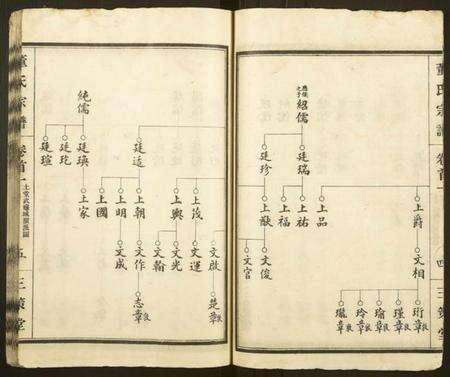 董氏宗譜
卷首一
四
三策堂
應儀之子
紹儒
廷瑞
廷珍
上爵
上品
上祐
上福
上猷
文相
文俊
文官
珩章
瑾章
瑜章
玲章
瓏章
純儒
廷瑛
廷玭
廷瑄
廷适
上茂
上興
上朝
上明
上國
上家
文啟
文運
文光
文翰
文作
文成
楚章
志章
董氏宗譜
卷首一
五
三策堂